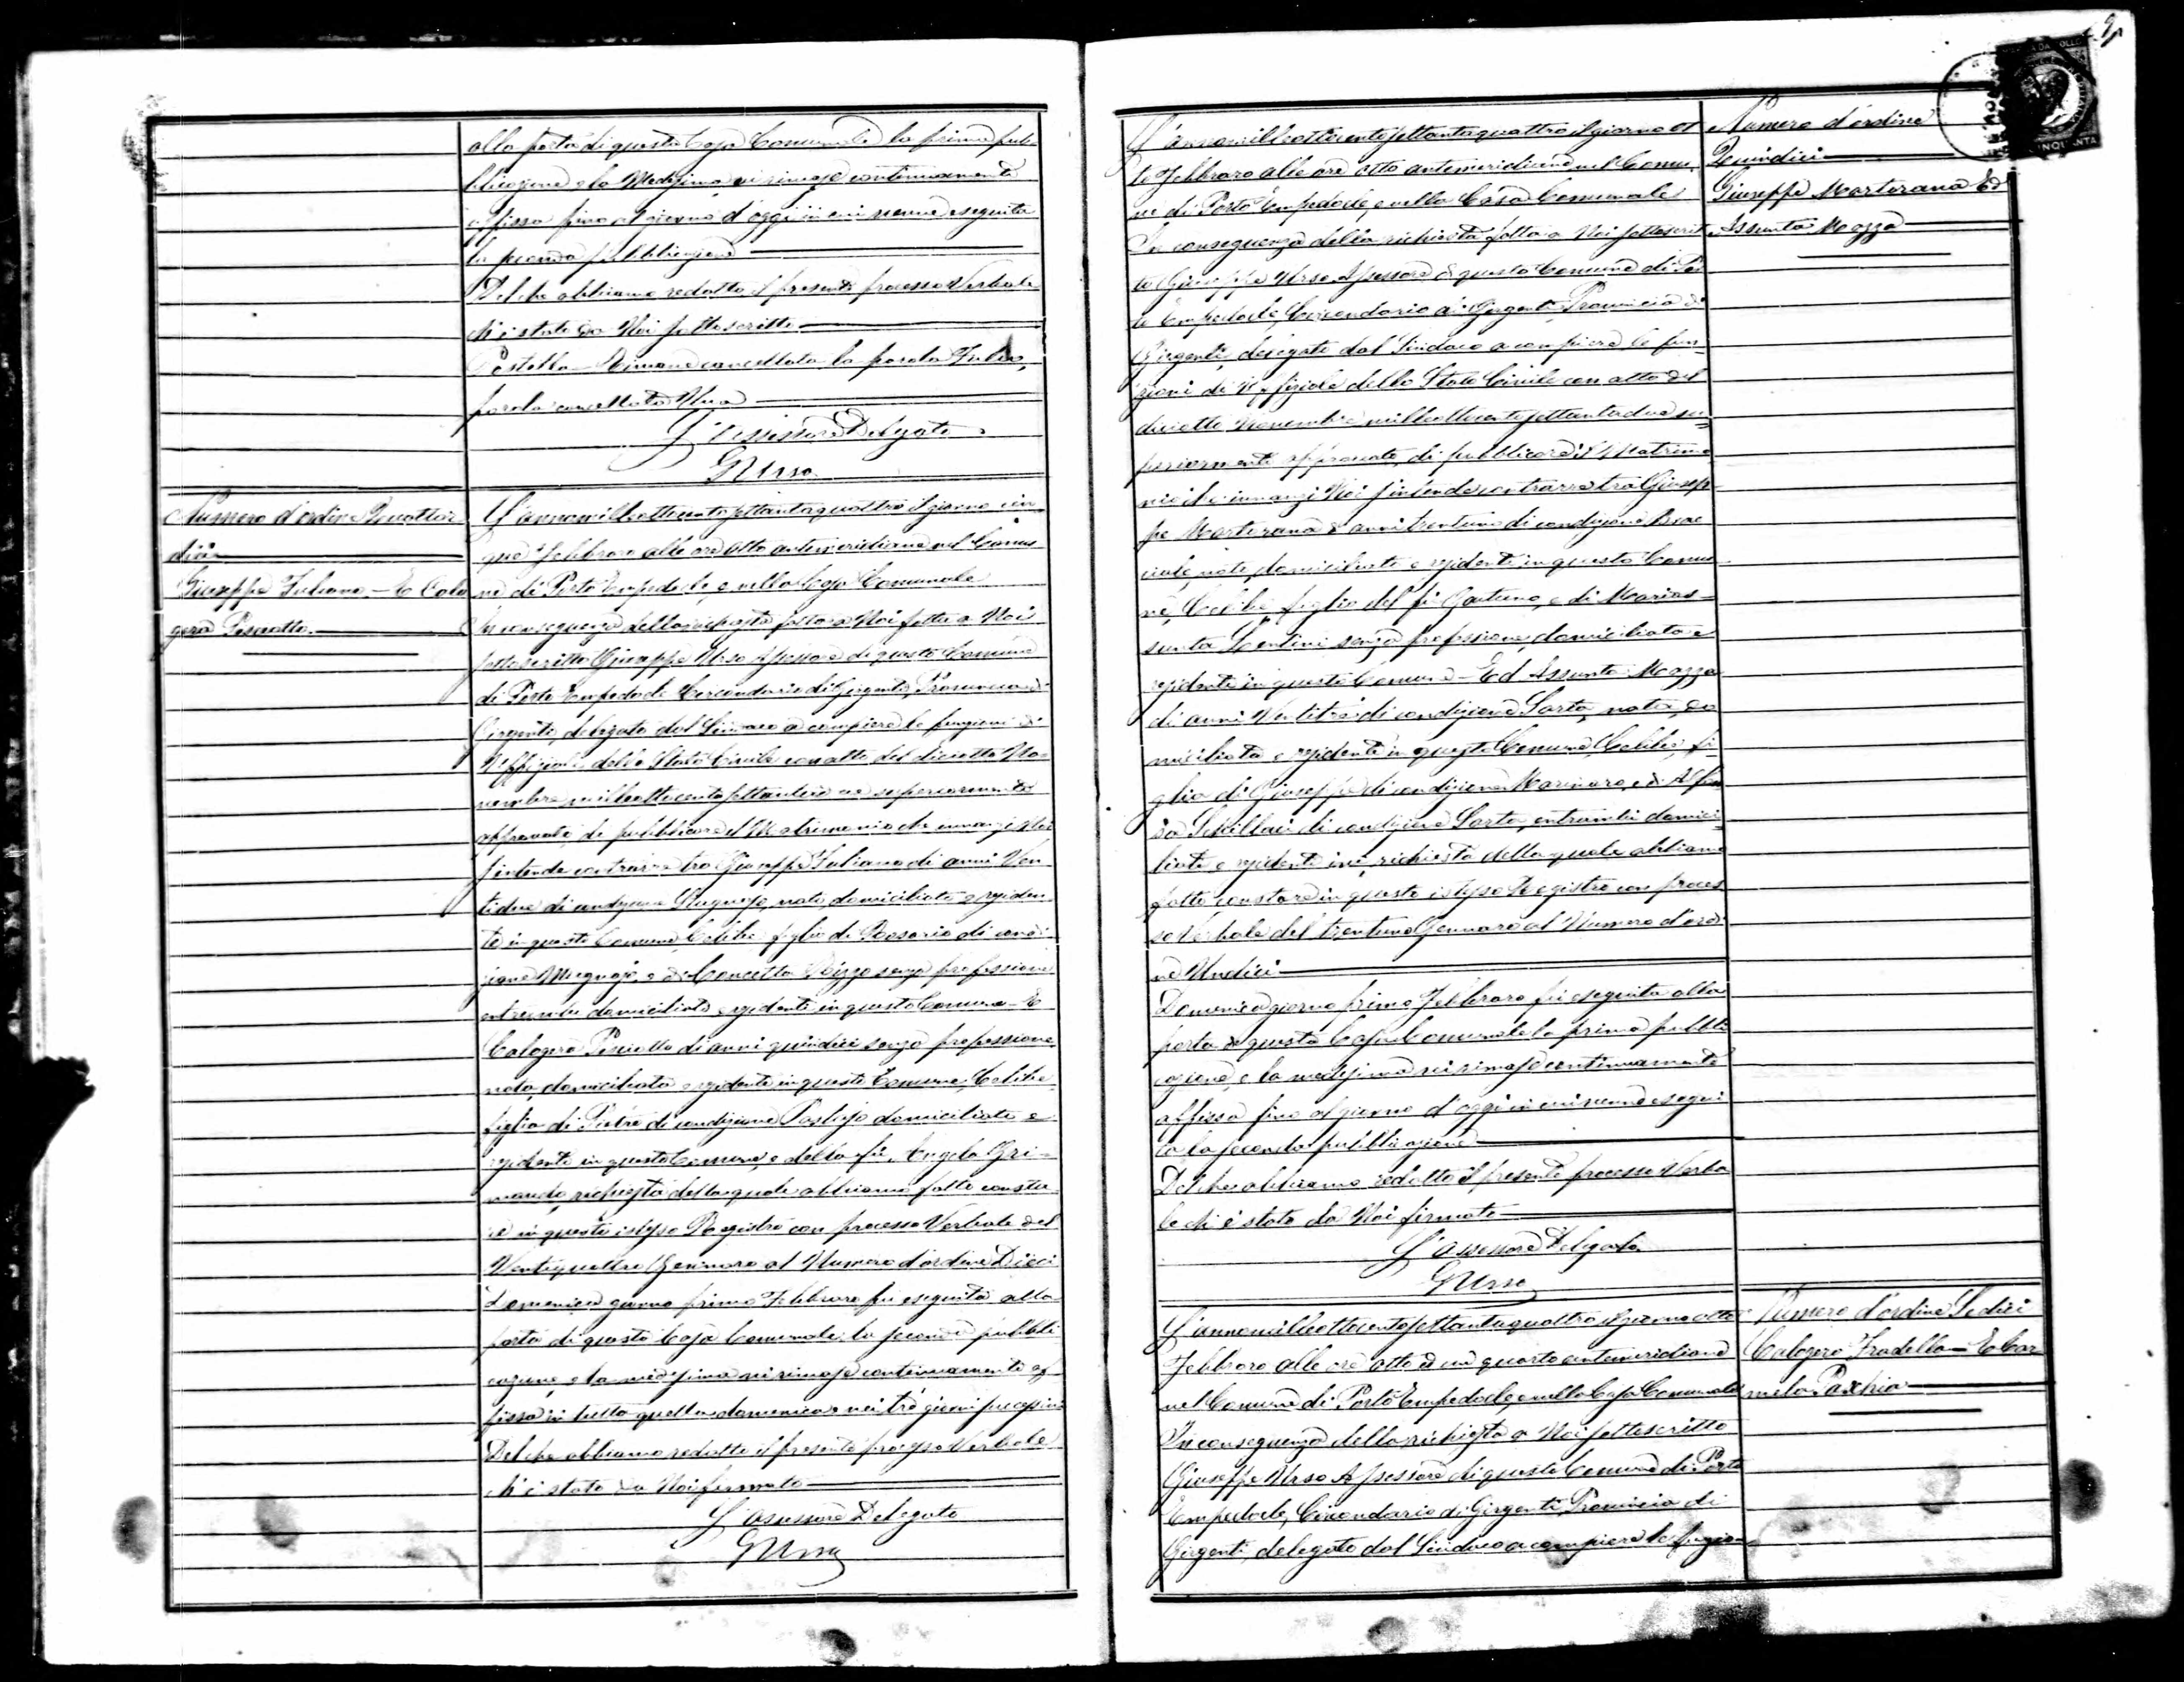 alla porta di questa Casa Comunale la prima pub-
blicazione e la Medesima vi rimase continuamente
affissa fino al giorno d'oggi in cui venne eseguita
la seconda pubblicazione
Del che abbiamo redatto il presente processo Verbale
ch'è stato da Noi sottoscritto
Postilla – Rimane cancellata la parola
parola cancellata Una
L'Assessore Delegato
G Urso
Numero d'ordine Quattor
dici
Giuseppe Fuliana – E Calo
gera Pisciotto
L'anno milleottocentosettantaquattro il giorno cin
que Febbraro alle ore otto antemeridiane nel Comu
ne di Porto Empedocle, e nella Casa Comunale
In conseguenza della richiesta fatta a Noi fatta a Noi
sottoscritto Giuseppe Urso Assessore di questo Comune
di Porto Empedocle Circondario di Girgenti, Provincia di
Girgenti, delegato dal Sindaco a compiere le funzioni di
Uffiziale dello Stato Civile con atto del dieciotto No
vembre milleottocentosettantadue superiormente
approvato, di pubblicare il Matrimonio che innanzi Noi
s'intende contrarre tra Giuseppe Fuliana di anni Ven
tidue di condizione nato, domiciliato e residen
te in questo Comune Celibe figlio di Rosario di condi
zione e di Concetta Rizzo senza professione
entrambi domiciliati e residenti in questo Comune – E
Calogera Pisciotto di anni quindici senza professione
nata, domiciliata e residente in questo Comune, Celibe
figlia di Pietro di condizione domiciliato e
residente in questo Comune, e della fu Angela Gri-
maudo, richiesta della quale abbiamo fatto consta
re in questo istesso Registro con processo Verbale del
Ventiquattro Gennaro al Numero d'ordine Dieci
Domenica giorno primo Febbraro fu eseguita alla
porta di questa Casa Comunale la seconda pubbli
cazione, e la medesima vi rimase continuamente af
fissa in tutta quella domenica e nei tre giorni successivi
Del che abbiamo redatto il presente processo Verbale
ch'è stato da Noi firmato
L'Assessore Delegato
G Urso
L'anno milleottocentosettantaquattro il giorno ot
to Febbraro alle ore otto antemeridiane nel Comu
ne di Porto Empedocle, e nella Casa Comunale
In conseguenza della richiesta fatta a Noi sottoscrit
to Giuseppe Urso Assessore di questo Comune di Por
to Empedocle, Circondario di Girgenti, Provincia di
Girgenti, delegato dal Sindaco a compiere le fun-
zioni di Uffiziale dello Stato Civile con atto del
dieciotto Novembre milleottocentosettantadue su-
periormente approvato, di pubblicare il Matrimo
nio che innanzi Noi s'intende contrarre tra Giusep
pe Martorana d'anni trentuno di condizione Brac
ciale, nato, domiciliato e residente in questo Comu
ne, Celibe, figlio del fu Gaetano, e di Marias-
sunta Lentini senza professione, domiciliata e
residente in questo Comune – Ed Assunta Mazza
di anni Ventitre di condizione Sarta, nata, do
miciliata e residente in questo Comune Celibe, fi
glia di Giuseppe di condizione Marinaro, e di Alfon
sa Schillaci di condizione Sarta, entrambi domici-
liati e residenti ivi, richiesta della quale abbiamo
fatto constare in questo istesso Registro con proces
so Verbale del trentuno Gennaro al Numero d'ordi
ne Undici
Domenica giorno primo Febbraro fu eseguita alla
porta di questa Casa Comunale la prima pubbli
cazione, e la medesima vi rimase continuamente
affissa fino al giorno d'oggi in cui venne esegui
ta la seconda pubblicazione
Del che abbiamo redatto il presente processo Verba
le ch'è stato da Noi firmato
L'Assessore Delegato
G Urso
Numero d'ordine
Quindici
Giuseppe Martorana Ed
Assunta Mazza
L'anno milleottocentosettantaquattro il giorno otto
Febbraro alle ore otto ed un quarto antemeridiane
nel Comune di Porto Empedocle e nella Casa Comunale
In conseguenza della richiesta a Noi sottoscritto
Giuseppe Urso Assessore di questo Comune di Porto
Empedocle, Circondario di Girgenti, Provincia di
Girgenti delegato dal Sindaco a compiere le funzioni
Numero d'ordine Sedici
Calogero Fradella – E Car
mela Parchia